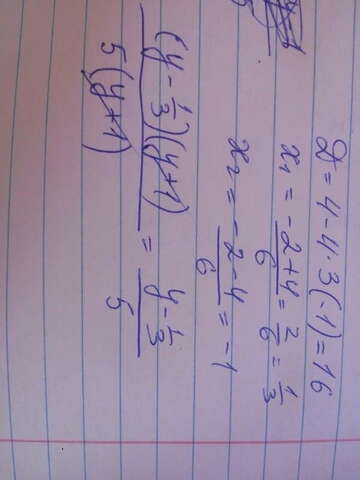 D = 4 - 4 · 3(-1) = 16
x₁ = (-2+4)/6 = 2/6 = 1/3
x₂ = (-2-4)/6 = -1
((y - 1/3)(y+1))/(5(y+1)) = (y - 1/3)/5